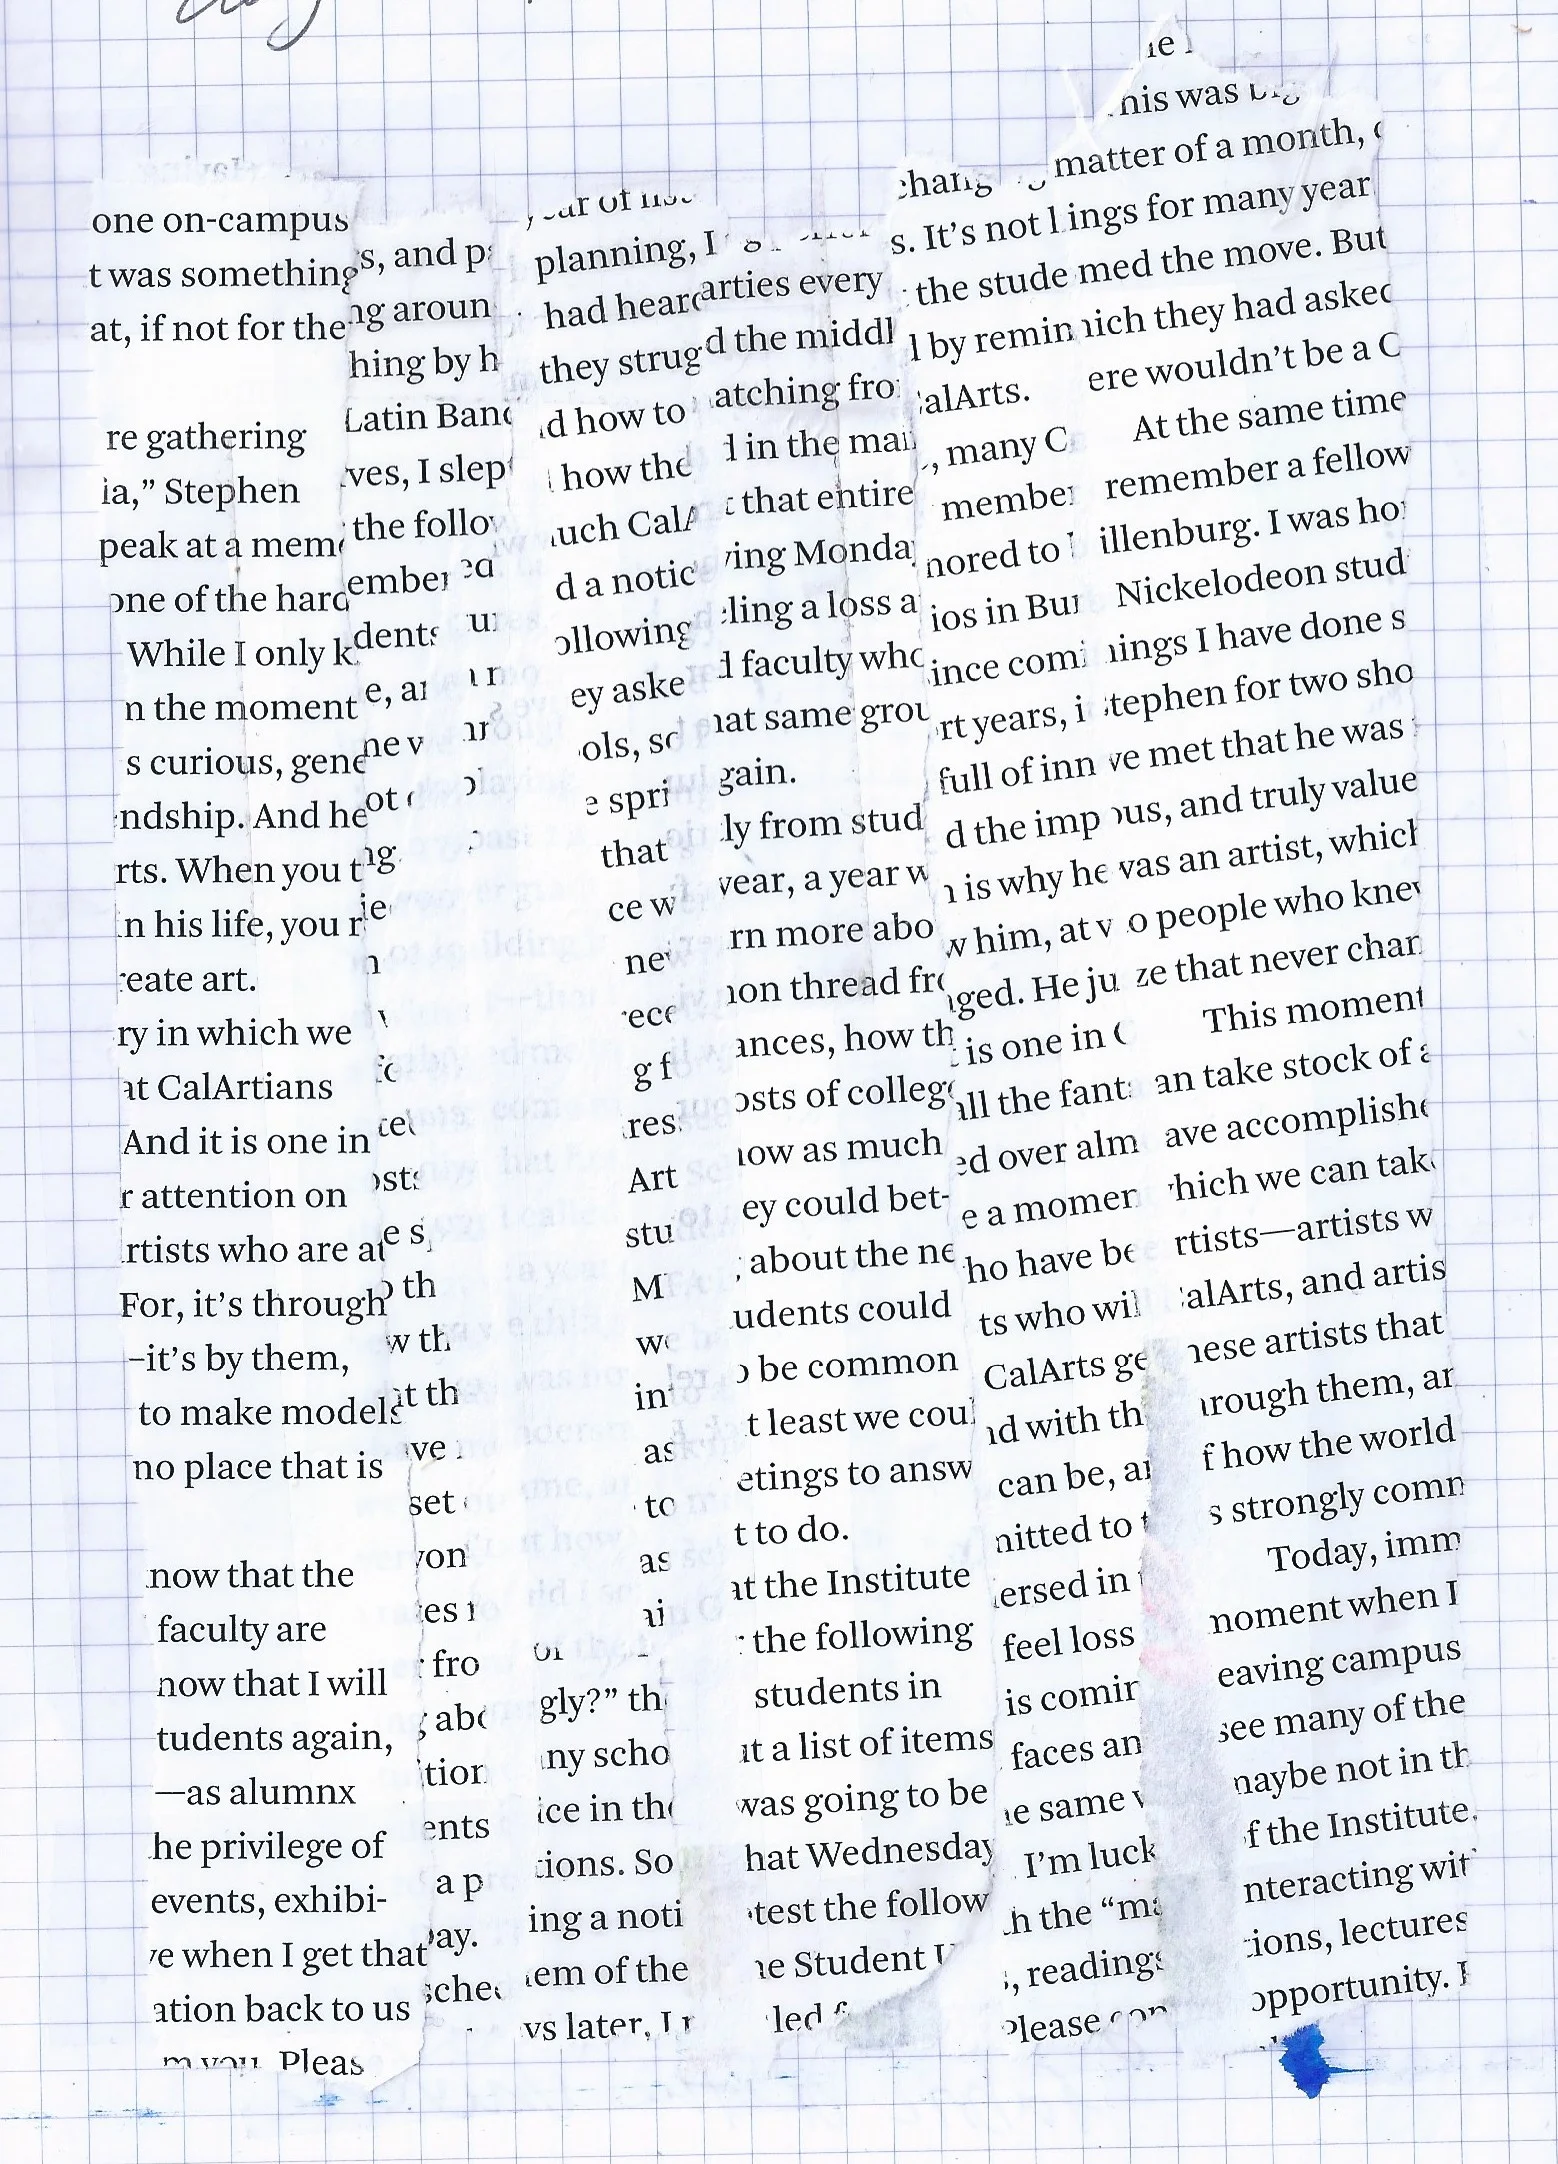 one on-campus
t was something
at, if not for the
re gathering
ia,” Stephen
peak at a mem
one of the hard
While I only k
n the moment
s curious, gene
ndship. And he
rts. When you t
n his life, you r
reate art.
ry in which we
at CalArtians
And it is one in
r attention on
rtists who are at
For, it’s through
–it’s by them,
to make models
no place that is
now that the
faculty are
now that I will
tudents again,
—as alumnx
he privilege of
events, exhibi-
ve when I get that
ation back to us
m you. Pleas
s, and p
ng aroun
hing by h
Latin Band
ves, I slept
the follow
ember
dents
e, ar
ne v
ot
ng
ie
n
ed
cet
osts
e s
o th
w th
t th
ve
set
von
es
fro
abo
tion
ents
a p
ay.
sched
year of
planning, I
had heard
they strug
d how to
how the
uch CalA
d a notic
ollowing
ey aske
ols, so
e spri
that
ce w
ne
rece
g f
res
Art
stu
M
we
int
as
to
as
ai
or
gly?” th
ny scho
ice in the
tions. So
ing a noti
em of the
ys later, I r
arties every
d the middl
atching fro
d in the mai
t that entire
ving Monday
ling a loss a
d faculty who
hat same grou
gain.
ly from stud
year, a year w
rn more abo
non thread fro
ances, how th
osts of college
now as much
ey could bet-
about the ne
udents could
o be common
t least we coul
etings to answ
t to do.
at the Institute
the following
students in
t a list of items
was going to be
hat Wednesday
test the follow
ne Student U
led f
chang
s. It’s not l
the stude
d by remin
alArts.
, many C
member
nored to
ios in Bur
ince comi
rt years, i
full of inn
d the imp
n is why he
w him, at v
nged. He ju
is one in C
all the fant
ed over alm
e a momen
ho have be
ts who wil
CalArts ge
nd with th
can be, ar
nitted to t
ersed in
feel loss
is comin
faces an
e same v
I’m luck
h the “ma
, readings
Please con
he
his was big
matter of a month,
ings for many year
med the move. But
hich they had asked
ere wouldn’t be a C
At the same time
remember a fellow
illenburg. I was hon
Nickelodeon stud
hings I have done s
Stephen for two sho
ve met that he was
ous, and truly value
was an artist, which
o people who knew
ze that never chan
This moment
an take stock of a
ave accomplishe
hich we can tak
rtists—artists w
alArts, and artis
hese artists that
hrough them, ar
f how the world
s strongly comm
Today, imm
noment when I
eaving campus
see many of the
naybe not in th
f the Institute.
nteracting wit
tions, lectures
opportunity. I